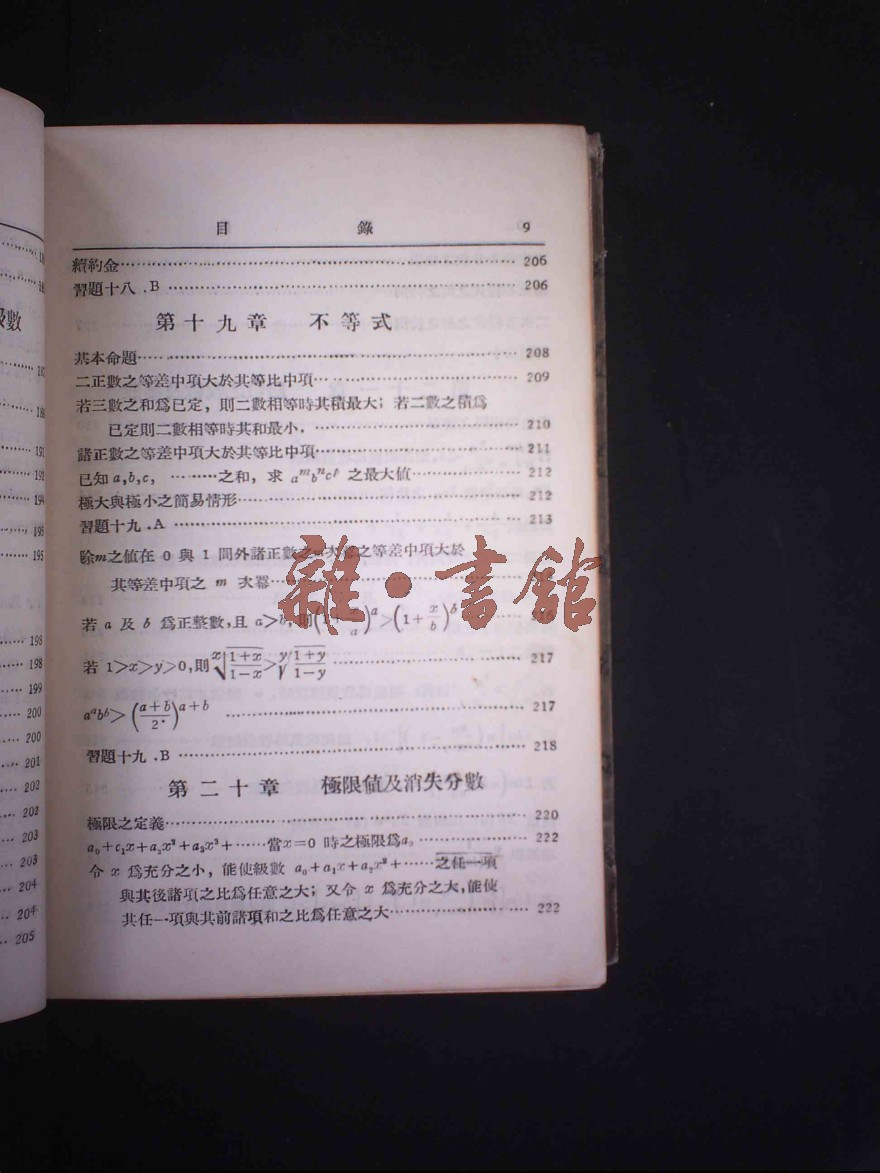 目 錄 9
續約金 206
習題十八 .B 206
第十九章 不等式
基本命題 208
二正數之等差中項大於其等比中項 209
若三數之和爲已定，則二數相等時其積最大；若二數之積爲
已定則二數相等時其和最小． 210
諸正數之等差中項大於其等比中項 211
已知 a,b,c, ………之和，求 aᵐbⁿcᵖ 之最大値 212
極大與極小之簡易情形 212
習題十九 .A 213
除m之値在 0 與 1 間外諸正數之m次冪之等差中項大於
其等差中項之 m 次冪
若 a 及 b 爲正整數,且 a>b,則(1+x/a)^a>(1+x/b)^b 216
若 1>x>y>0,則 ˣ√((1+x)/(1−x))>ʸ√((1+y)/(1−y)) 217
aᵃbᵇ>((a+b)/2)^(a+b) 217
習題十九 .B 218
第二十章 極限値及消失分數
極限之定義 220
a₀+c₁x+a₂x²+a₃x³+……當x=0 時之極限爲a₀ 222
令 x 爲充分之小，能使級數 a₀+a₁x+a₂x²+……之任一項
與其後諸項之比爲任意之大；又令 x 爲充分之大,能使
其任一項與其前諸項和之比爲任意之大 222
雜·書館
級數
198
198
199
200
200
201
202
202
203
203
204
204
205
191
192
194
195
195